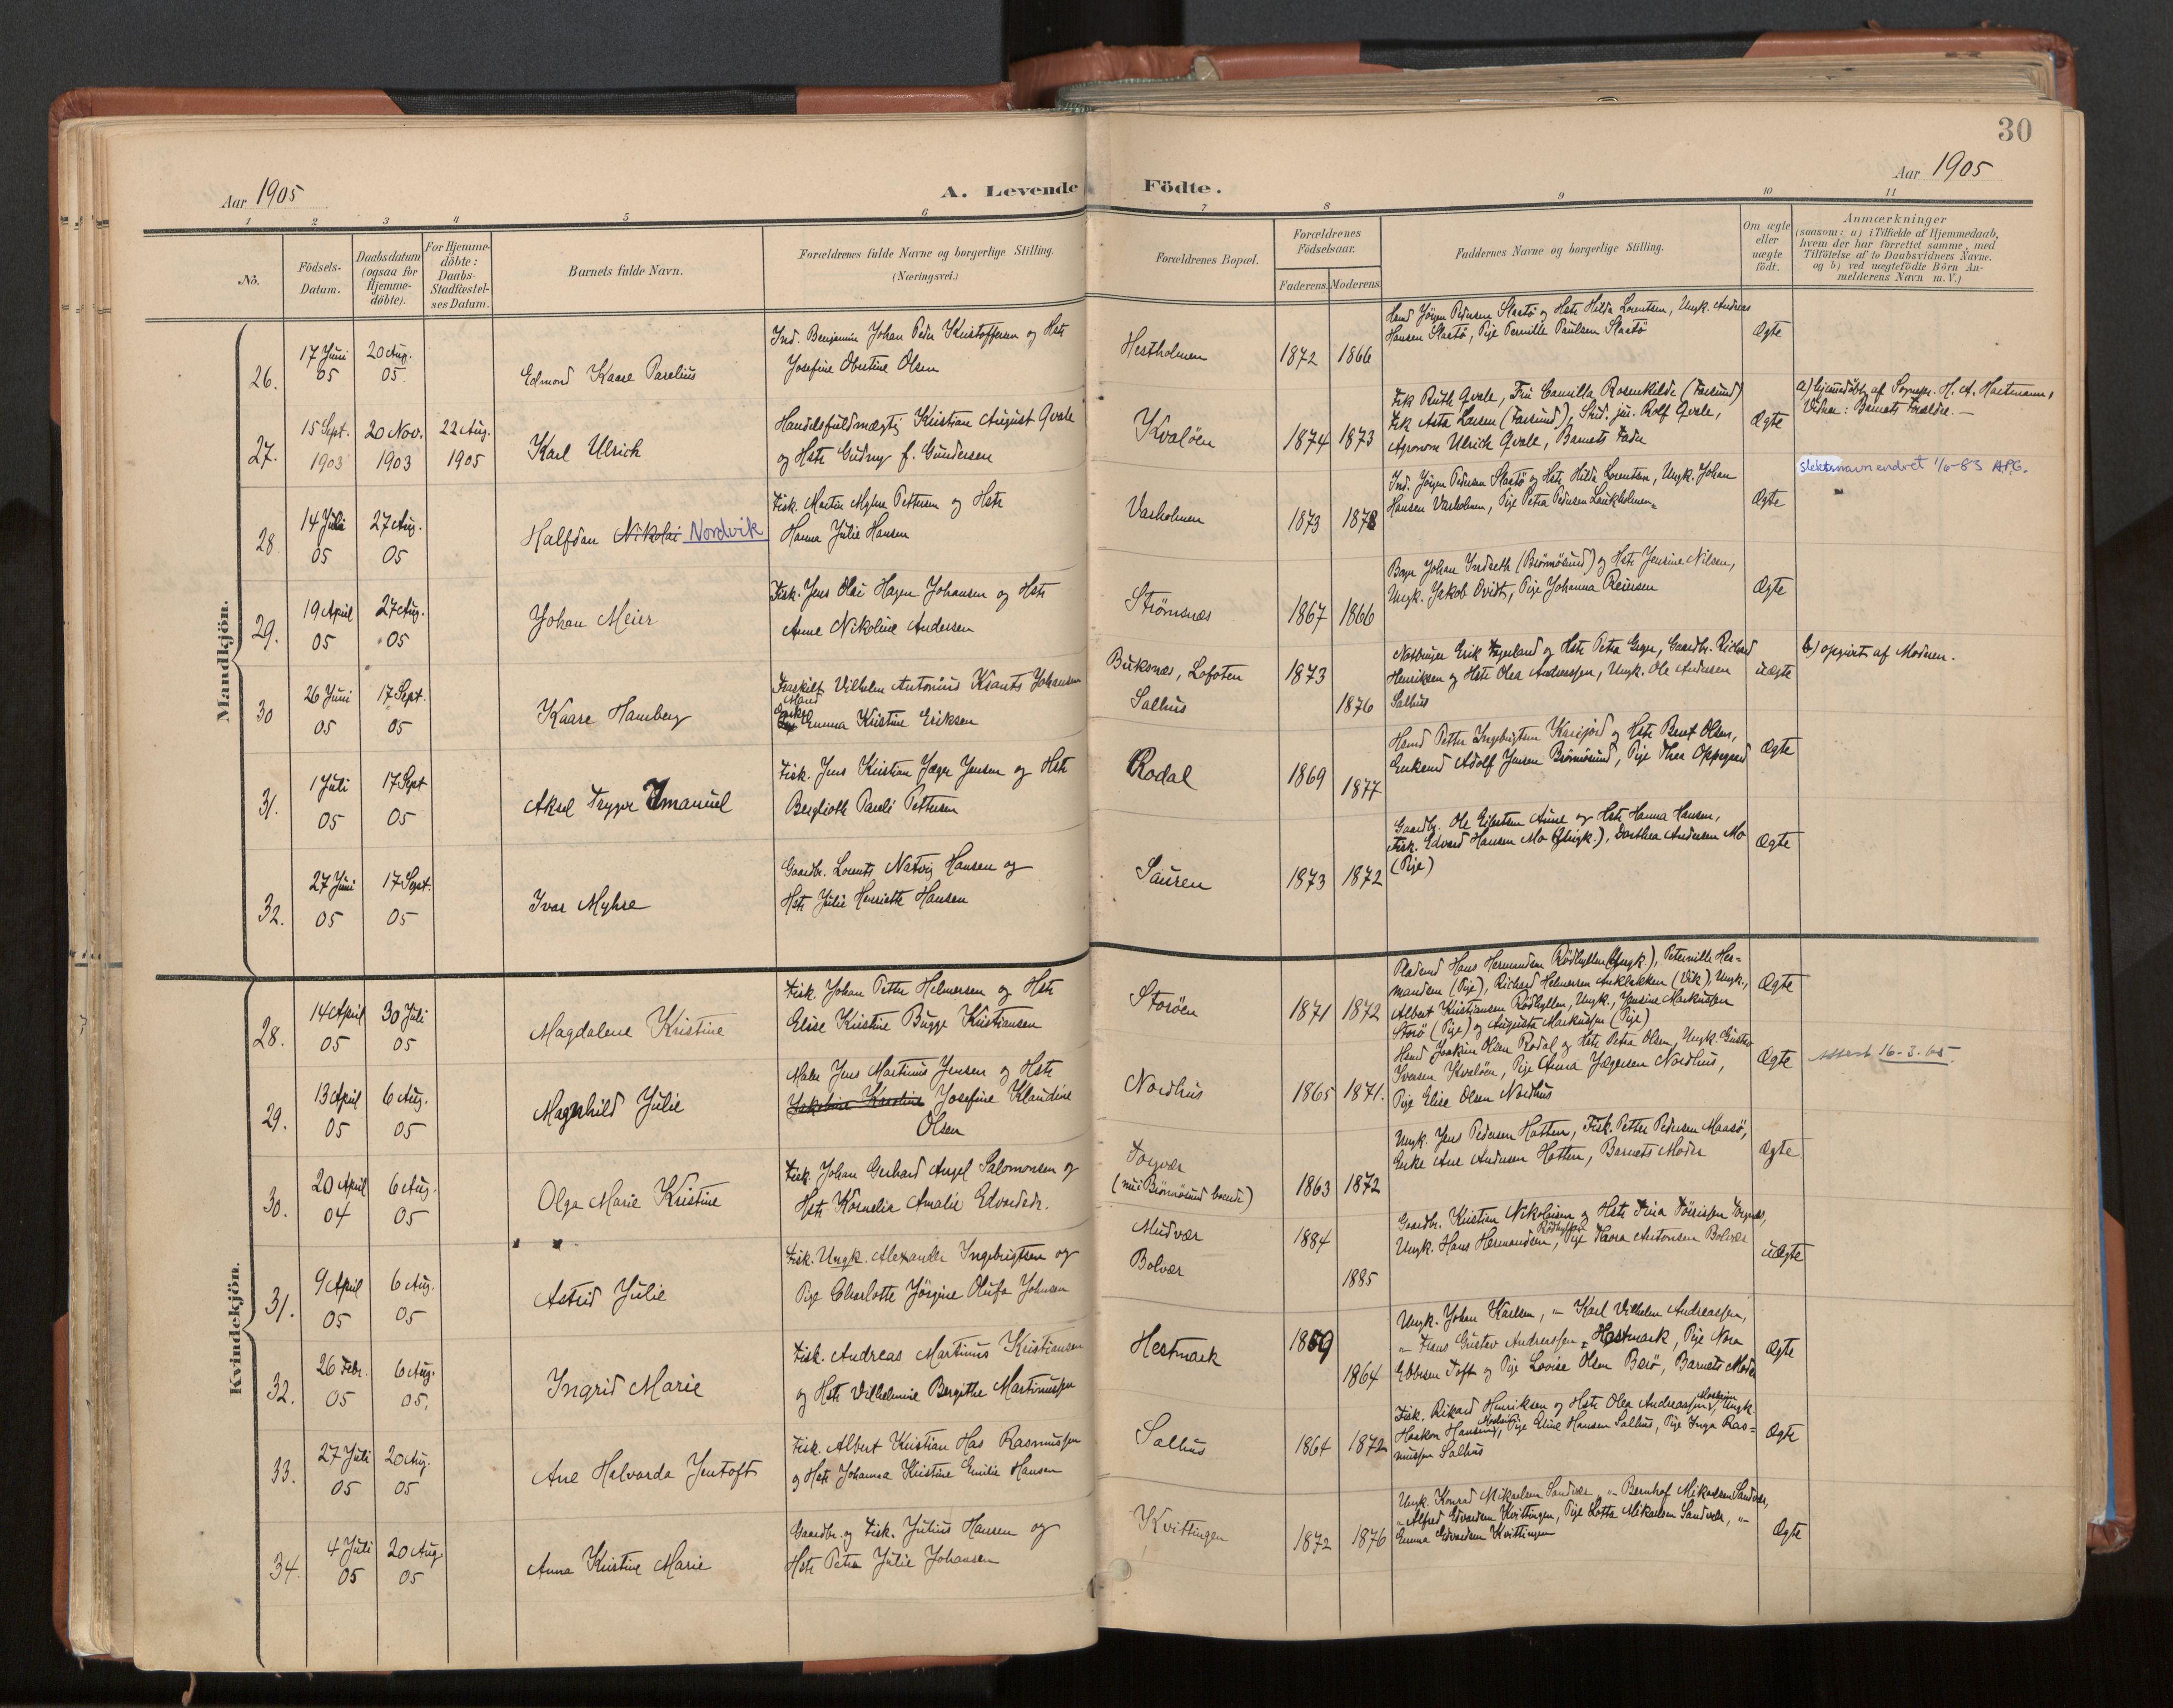 30
Aar 1905
A. Levende Födte.
Aar 1905
1 2 3 4 5 6 7 8 9 10 11
No.
Födsels-Datum.
Daabsdatum (ogsaa for Hjemme-döbte).
For Hjemme-döbte: Daabs-Stadfæstel-ses Datum.
Barnets fulde Navn.
Forældrenes fulde Navne og borgerlige Stilling. (Næringsvei.)
Forældrenes Bopæl.
Forældrenes Födselsaar.
Faderens. Moderens.
Faddernes Navne og borgerlige Stilling.
Om ægte eller uægte födt.
Anmærkninger
(saasom: a) i Tilfælde af Hjemmedaab,
hvem der har forrettet samme, med
Tilföielse af to Daabsvidners Navne.
og b) ved uægtefödte Börn An-
melderens Navn m.V.)
Mandkjön.
26. 17 Juni 05 20 Aug. 05 Edmond Kaare Parelius
Ind. Benjamin Johan Peder Kristoffersen og Hstr
Josefine Obertine Olsen
Hestholmen 1872 1866
Hand Jörgen Pedersen Slaatö og Hstr Hilda Lorentsen, Ungk. Andreas
Hansen Slaatö, Pige Pernille Paulsen Slaatö
Ægte
27. 15 Sept. 1903 20 Nov. 1903 22 Aug. 1905 Karl Ulrich
Handelsfuldmægtig Kristian August Qvale
og Hstr Gudrug f. Gundersen
Kvalöen 1874 1873
Frk Ruth Qvale, Fru Camilla Rosenkilde (Farsund)
Frk Asta Larsen (Farsund), Stud. jur. Rolf Qvale,
Agronom Ulrich Qvale, Barnets Fader
Ægte
a) hjemmedöbt af Sognepr. H. A. Hartmann,
Vidner: Barnets Forældre. —
28 14 Juli 05 27 Aug. 05 Halfdan Nikolai Nordvik
Fisk. Martin Myhre Pettersen og Hstr
Hanna Julie Hansen
Vasholmen 1873 1878
Ind. Jörgen Pedersen Slaatö og Hstr Hilda Lorentsen, Ungk. Johan
Hansen Vasholmen, Pige Petra Pedersen Laukholmen
Ægte
slektsnavn endret 1/6-83 A.P.G.
29. 19 April 05 27 Aug. 05 Johan Meier
Fisk. Jens Olai Hagen Johansen og Hstr
Anne Nikoline Andersen
Strömsnæs 1867 1866
Johan Indseth (Brönnösund) og Hstr Jensine Nilsen,
Ungk. Jakob Qvidt, Pige Johanna Reinsen
Ægte
30 26 Juni 05 17 Sept. 05 Kaare Hamberg
Fraskilt Mand Vilhelm Antonius Krantz Johansen
Enke Emma Kristine Eriksen
Buksnæs, Lofoten 1873
Salhus 1876
Erik Fagerland og Hstr Petra, Gaardbr. Richard
Henriksen og Hstr Olea Andreassen, Ungk. Ole Andersen
Salhus
uægte
b) opgivet af Moderen.
31. 1 Juli 05 17 Sept 05 Aksel Trygve Imanuel
Fisk. Jens Kristian Jæger Jensen og Hstr
Berglioth Pareli Pettersen
Rodal 1869 1877
Hand Petter Ingebrigtsen Karijord og Hstr Berit Olsen,
Enkemd Adolf Jensen Brönnösund, Pige Thea Oppegaard
Ægte
32. 27 Juni 05 17 Sept. 05 Ivar Myhre
Gaardbr. Lorents Natvig Hansen og
Hstr Julie Henriette Hansen
Sauren 1873 1872
Gaardbr. Ole Eilertsen Aune og Hstr Hanna Hansen,
Fisk. Edvard Hansen Mo (Ungk.), Dorthea Andersen Mo
(Pige)
Ægte
Kvindekjön.
28. 14 April 05 30 Juli 05 Magdalene Kristine
Fisk. Johan Petter Helmersen og Hstr
Elise Kristine Bugge Kristiansen
Storöen 1871 1872
Hans Hermandsen Rödhyllen (Ungk), Peternille Her-
mandsen (Pige), Richard Helmersen Anklakken (Vik), Ungk.,
Albert Kristiansen Rödhyllen, Ungk., Jensine Markussen
Storö (Pige) og Augusta Markussen (Pige)
Ægte
29. 13 April 05 6 Aug. 05 Magnhild Julie
Maler Jens Martinus Jensen og Hstr
Jakobine Karoline Josefine Klaudine
Olsen
Nordhus 1865 1871.
Hand Joakim Olsen Rodal og Hstr Petra Olsen, Ungk. Gustav
Iversen Kvalöen, Pige Anna Jægersen Nordhus,
Pige Elise Olsen Nordhus
Ægte
Attest 16-3-65.
30. 20 April 04 6 Aug. 05 Olga Marie Kristine
Fisk. Johan Gerhard Angel Salomonsen og
Hstr Kornelia Amalie Edvardsdr.
Torgvær
(nu i Brönnösund boende) 1863 1872
Ungk. Jens Pedersen Hatten, Fisk. Petter Pedersen Maasö,
Enke Ane Andersen Hatten, Barnets Moder
Ægte.
31. 9 April 05 6 Aug. 05 Astrid Julie
Fisk. Ungk. Alexander Ingebrigtsen og
Pige Charlotte Jörgine Olufa Johnsen
Mudvær 1884
Bolvær 1885
Gaardbr. Kristian Nikolaisen og Hstr Trina Törrissen
Ungk. Hans Hermandsen Rödhyllen, Pige Thora Antonsen Bolvær
uægte
32. 26 Febr. 05 6 Aug. 05. Ingrid Marie
Fisk. Andreas Martinus Kristiansen
og Hstr Vilhelmine Bergithe Martinussen
Hestmark 1859 1864
Ungk. Johan Karlsen, "— Karl Vilhelm Andreassen,
"— Frans Gustav Andreassen, Hestmark, Pige Nora
Ebbesen Toft og Pige Lovise Olsen Berö, Barnets Moder
Ægte
33. 27 Juli 05 20 Aug. 05 Ane Halvarda Jentoft
Fisk. Albert Kristian Has Rasmussen
og Hstr Johanna Kristine Emilie Hansen
Salhus 1864 1872
Fisk. Rikard Henriksen og Hstr Olea Andreassen, Ungk.
Haakon Hansen, Pige Eline Hansen Salhus, Pige Inga Ras-
mussen Salhus
Ægte
34. 4 Juli 05 20 Aug 05 Anna Kristine Marie
Gaardbr. og Fisk. Julius Hansen og
Hstr Petra Julie Johansen
Kvittingen 1872 1876
Ungk. Konrad Mikaelsen Sandvær, "— Bernhof Mikaelsen Sandvær,
"— Alfred Edvardsen Kvittingen, Pige Lotta Mikaelsen Sandvær, "—
Emma Edvardsen Kvittingen
Ægte